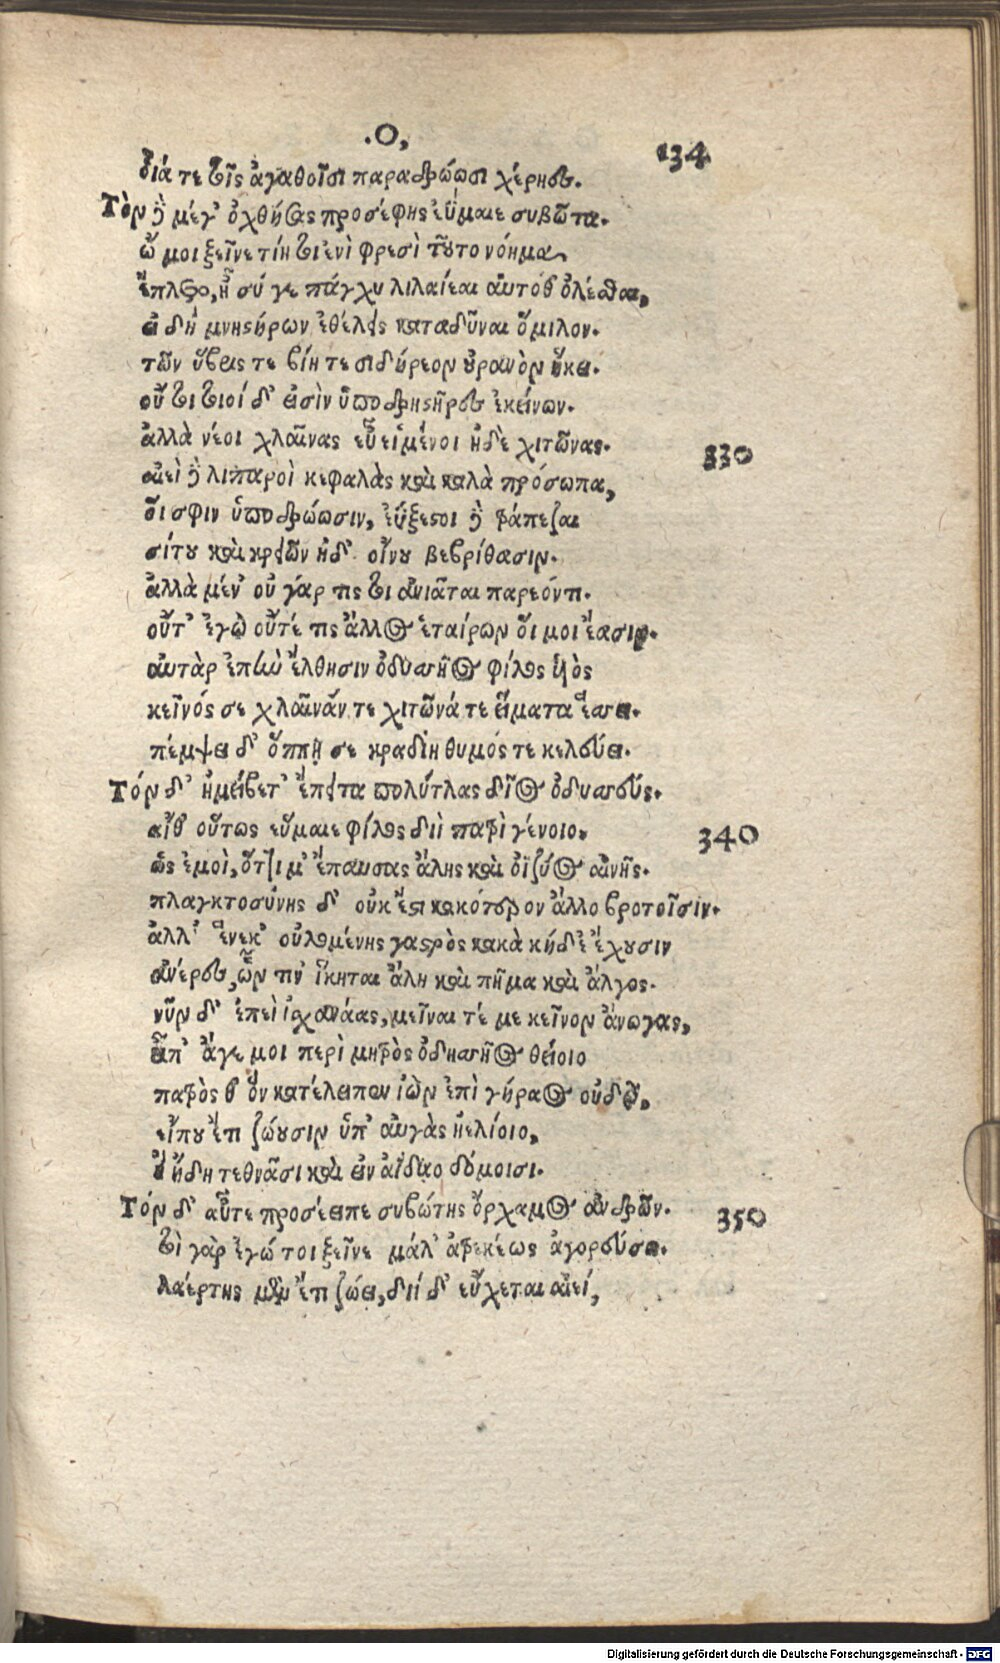 .Ο,
134
οἷά τε τοῖς ἀγαθοῖσι παραδρώωσι χέρηες.
Τὸν δὲ μέγ' ὀχθήσας προσέφης εὔμαιε συβῶτα.
ὤ μοι ξεῖνε τίη τοι ἐνὶ φρεσὶ τοῦτο νόημα
ἔπλετο, ἦ σύ γε πάγχυ λιλαίεαι αὐτόθ' ὀλέσθαι,
εἰ δὴ μνηστήρων ἐθέλεις καταδῦναι ὅμιλον.
τῶν ὕβρις τε βίη τε σιδήρεον οὐρανὸν ἥκει.
οὔ τοι τοιοί δ' εἰσὶν ὑποδρηστῆρες ἐκείνων.
ἀλλὰ νέοι χλαῖνας εὖ εἱμένοι ἠδὲ χιτῶνας.
330
αἰεὶ δὲ λιπαροὶ κεφαλὰς καὶ καλὰ πρόσωπα,
οἵ σφιν ὑποδρώωσιν, ἐΰξεστοι δὲ τράπεζαι
σίτου καὶ κρειῶν ἠδ' οἴνου βεβρίθασιν.
ἀλλὰ μέν' οὐ γάρ τις τοι ἀνιᾶται παρεόντι.
οὔτ' ἐγὼ οὔτέ τις ἄλλος ἑταίρων οἵ μοι ἔασιν.
αὐτὰρ ἐπὴν ἔλθησιν ὀδυσσῆος φίλος υἱὸς
κεῖνός σε χλαῖνάν τε χιτῶνά τε εἵματα ἕσσει.
πέμψει δ' ὅππη σε κραδίη θυμός τε κελεύει.
Τόν δ' ἠμείβετ' ἔπειτα πολύτλας δῖος ὀδυσσεύς.
αἴθ' οὕτως εὔμαιε φίλος διὶ πατρὶ γένοιο.
340
ὡς ἐμοὶ, ὅττι μ' ἔπαυσας ἄλης καὶ ὀϊζύος αἰνῆς.
πλαγκτοσύνης δ' οὐκ ἔστι κακότερον ἄλλο βροτοῖσιν.
ἀλλ' ἕνεκ' οὐλομένης γαστρὸς κακὰ κήδε' ἔχουσιν
ἀνέρες, ὧν τιν' ἵκηται ἄλη καὶ πῆμα καὶ ἄλγος.
νῦν δ' ἐπεὶ ἰσχανάας, μεῖναι τέ με κεῖνον ἄνωγας,
εἴπ' ἄγε μοι περὶ μητρὸς ὀδησσῆος θείοιο
πατρὸς θ' ὅν κατέλειπεν ἰὼν ἐπὶ γήραος οὐδῷ,
εἴπου ἔτι ζώουσιν ὑπ' αὐγὰς ἠελίοιο,
ἢ ἤδη τεθνᾶσι καὶ εἰν ἀΐδαο δόμοισι.
Τόν δ' αὖτε προσέειπε συβώτης ὄρχαμος ἀνδρῶν.
350
τοὶ γὰρ ἐγώ τοι ξεῖνε μάλ' ἀτρεκέως ἀγορεύσω.
λαέρτης μὲν ἔτι ζώει, διὶ δ' εὔχεται αἰεί,
Digitalisierung gefördert durch die Deutsche Forschungsgemeinschaft - DFG